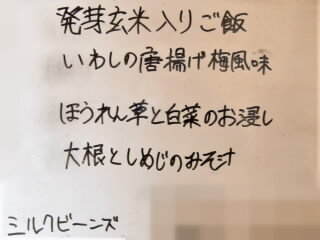 発芽玄米入りご飯
いわしの唐揚げ梅風味
ほうれん草と白菜のお浸し
大根としめじのみそ汁
ミルクビーンズ